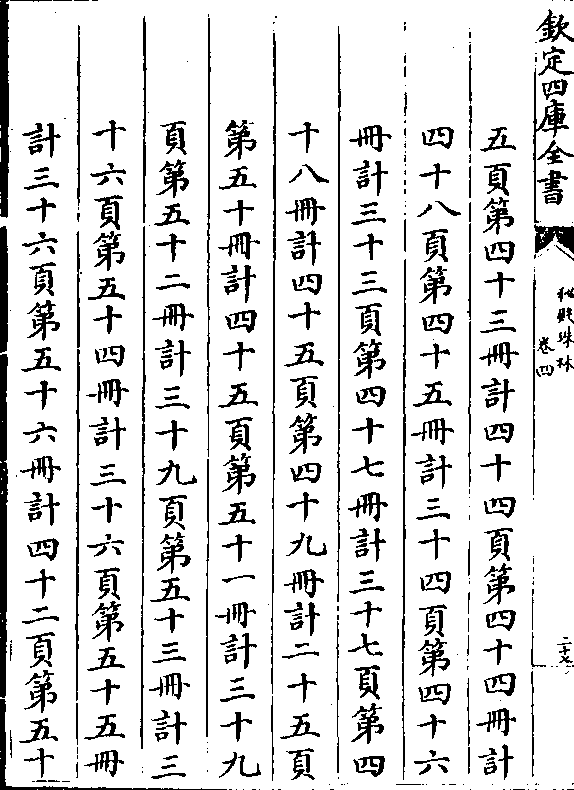 欽定四庫全書
秘殿珠林
卷四
二十七
五頁第四十三冊計四十四頁第四十四冊計
四十八頁第四十五冊計三十四頁第四十六
冊計三十三頁第四十七冊計三十七頁第四
十八冊計四十五頁第四十九冊計二十五頁
第五十冊計四十五頁第五十一冊計三十九
頁第五十二冊計三十九頁第五十三冊計三
十六頁第五十四冊計三十六頁第五十五冊
計三十六頁第五十六冊計四十二頁第五十